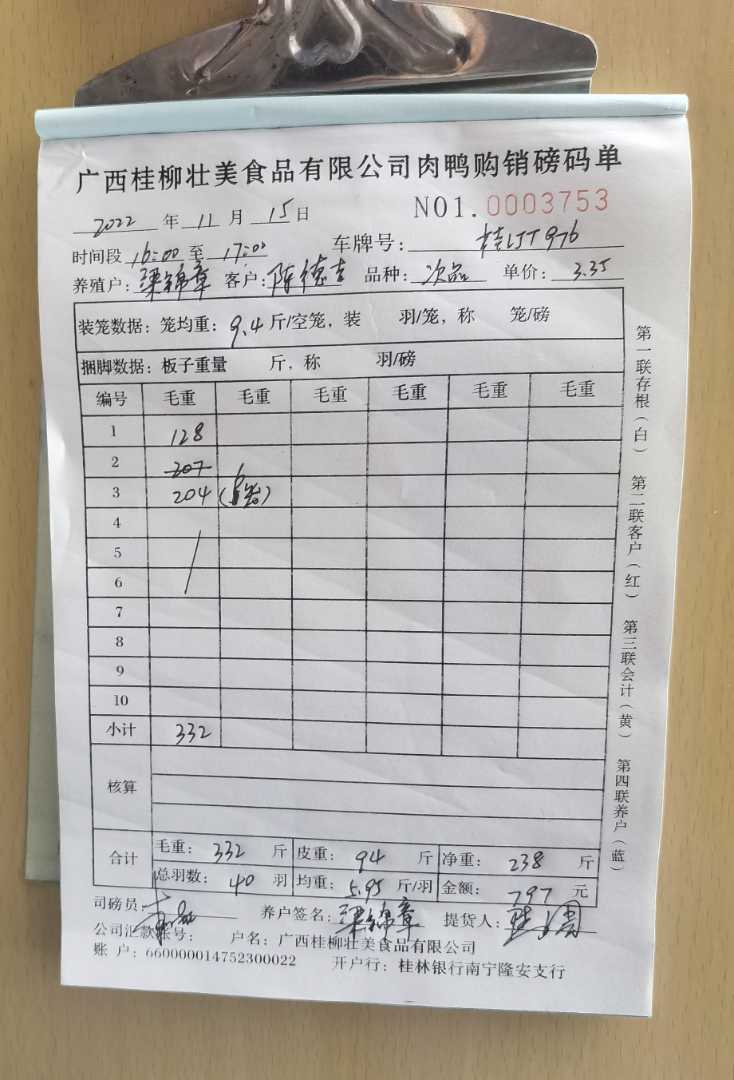 广西桂柳壮美食品有限公司肉鸭购销磅码单
2022 年 11 月 15 日 NO1.0003753
时间段 16:00 至 17:00 车牌号: 桂LJT976
养殖户: 梁锦章 客户: 陈德吉 品种: 次品 单价: 3.35
装笼数据: 笼均重: 9.4 斤/空笼, 装 羽/笼, 称 笼/磅
捆脚数据: 板子重量 斤, 称 羽/磅
编号 毛重 毛重 毛重 毛重 毛重 毛重
1 128
2 207
3 204
4
5
6
7
8
9
10
小计 332
核算
合计 毛重: 332 斤 皮重: 94 斤 净重: 238 斤
总羽数: 40 羽 均重: 5.95 斤/羽 金额: 797 元
司磅员: 养户签名: 梁锦章 提货人:
公司汇款账号: 户名: 广西桂柳壮美食品有限公司
账 户: 660000014752300022 开户行: 桂林银行南宁隆安支行
第一联存根(白)
第二联客户(红)
第三联会计(黄)
第四联养户(蓝)